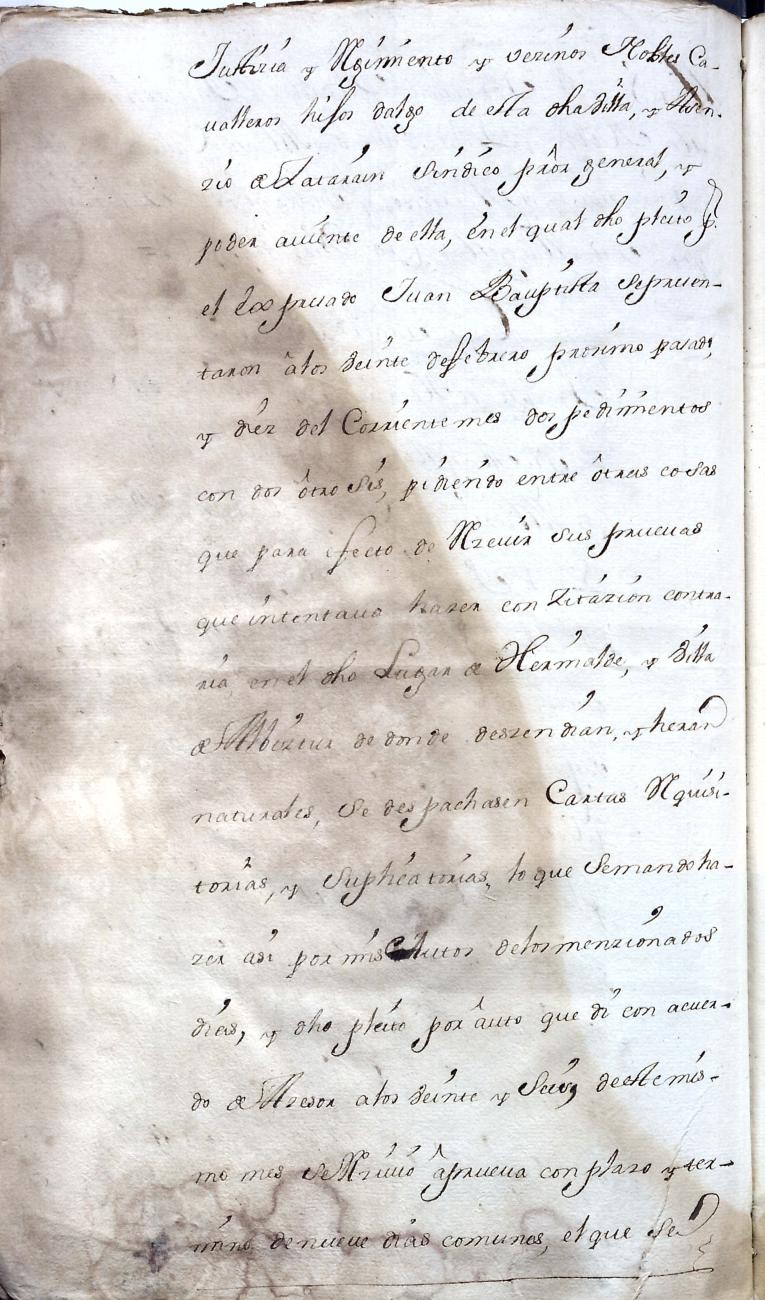 Justizia y Rẽgimiento y vezinos Nobles Ca-
valleros hijos dalgo de esta dha Villa, y
de Zatarain Sindico prõr general, y
poder aviente de ella, en el qual dho pleito p.
el expresado Juan Bauptista se presen-
taron â los veinte de febrero proximo pasado,
y diez del Corriente mes dos pedimentos
con dos ôtro sis, pidiendo entre ôtras cosas
que para efecto de Rrevir sus pruevas
que intentava hazer con Zitazion contra-
ria, en el dho Lugar de Hermalde, y Villa
de de donde deszendian, y heran
naturales, se despachasen Cartas Rquisi-
torias, y Suplicatorias, lo que se mando ha-
zer asi por mis Autos de los menzionados
dias, y dho pleito por âuto que di con acuer-
do de Asesor a los veinte y Seis de este mis-
mo mes se Rzivio â prueva con plazo y ter-
mino de nueve dias comunes, el que se